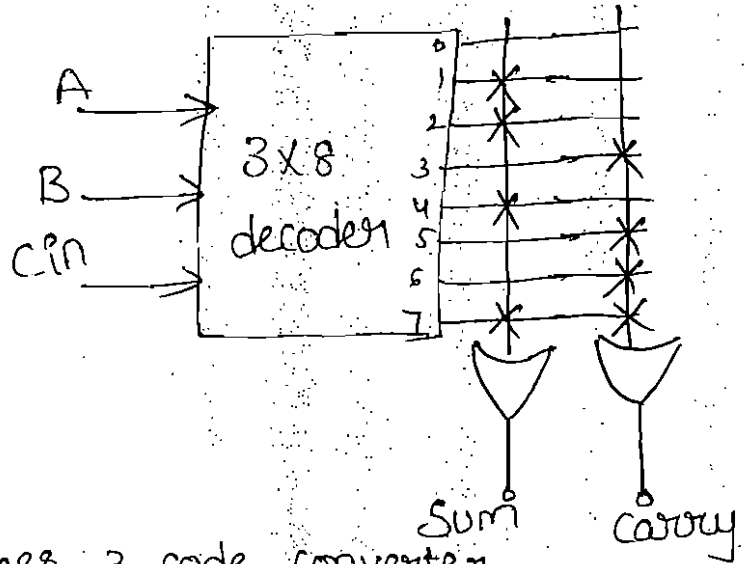 A
B
Cin
3X8
decoder
0
1
2
3
4
5
6
7
Sum
carry
3 code converter